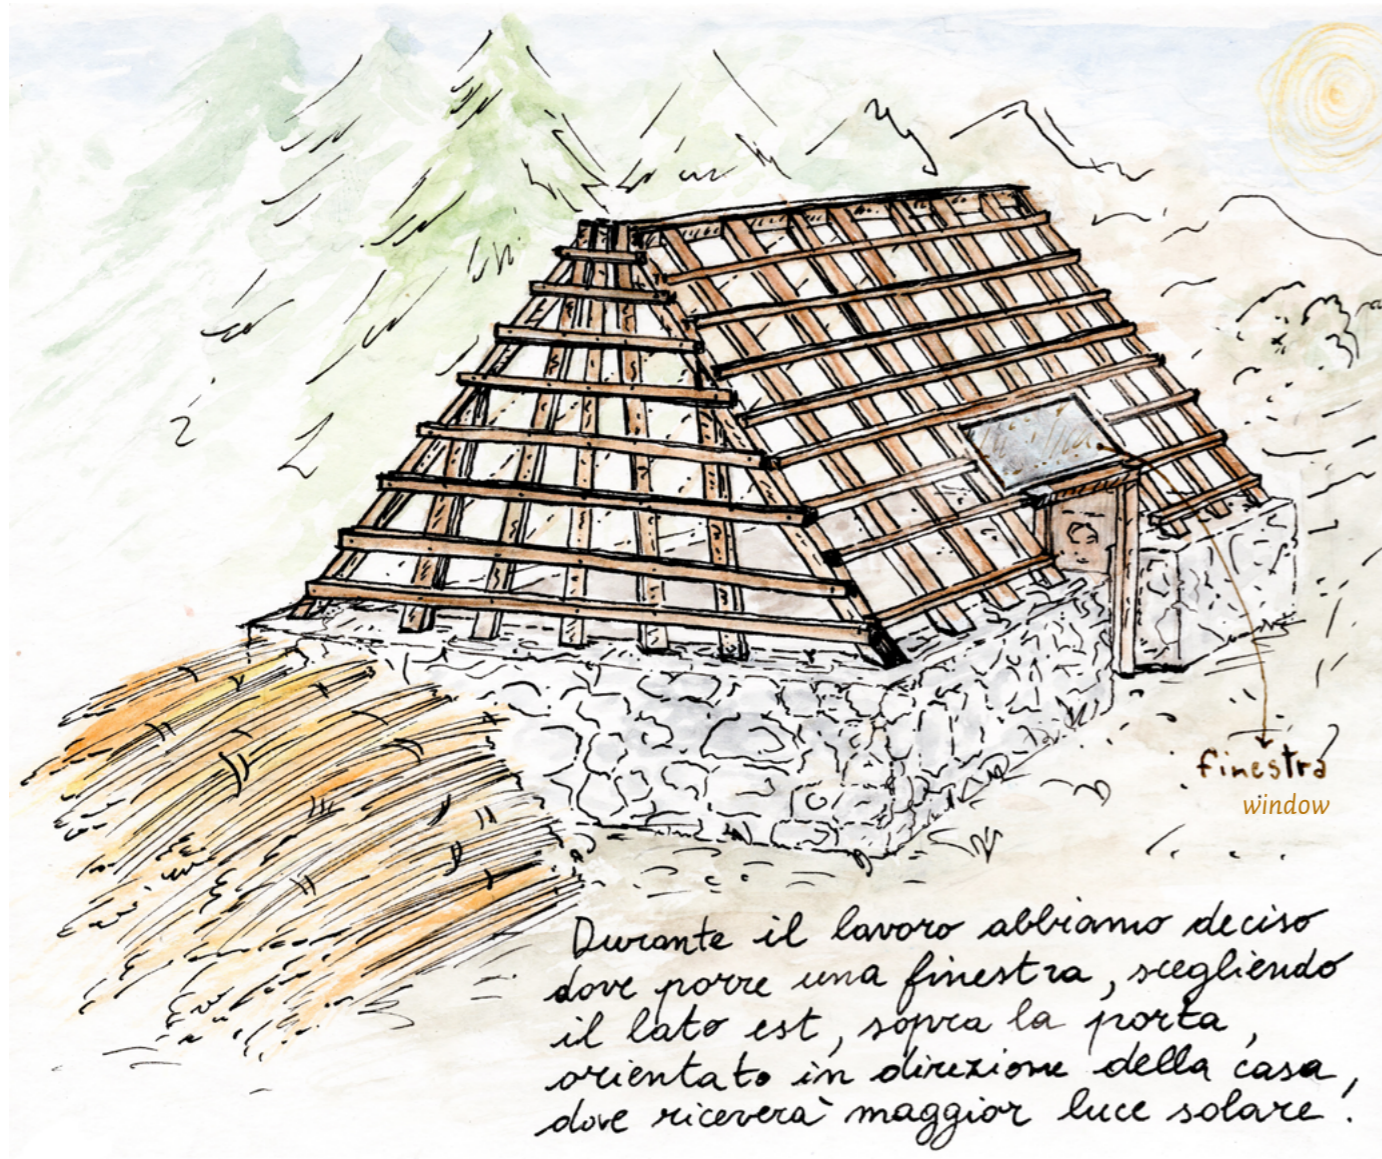 finestra
window
Durante il lavoro abbiamo deciso
dove porre una finestra, scegliendo
il lato est, sopra la porta,
orientato in direzione della casa,
dove riceverà maggior luce solare!